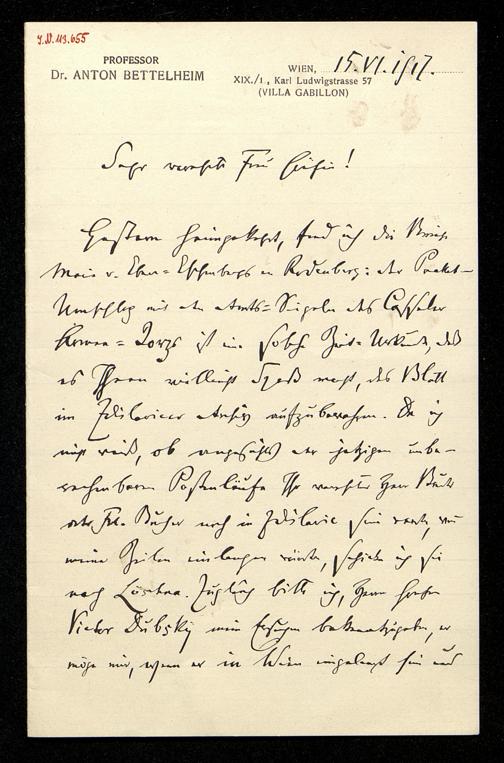 J.N. 113.655
PROFESSOR
Dr. ANTON BETTELHEIM
WIEN, 15. VI. 1917.
XIX./1, Karl Ludwigstrasse 57
(VILLA GABILLON)
Sehr verehrte Frau Gräfin!
Gestern heimgekehrt, fand ich die Briefe
Marie v. Ebner-Eschenbachs an Rodenberg: der Packet-
Umschlag mit den Amts-Siegeln des Casseler
ist ein solche Zeit-Urkunde, daß
es Ihnen vielleicht Spaß macht, das Blatt
im Zdislavicer Archiv aufzubewahren. Da ich
nicht weiß, ob angesichts der jetzigen unbe-
rechenbaren Postenläufe Ihr verehrter Herr
oder Frl. Bucher noch in Zdislavic sein werden, wenn
meine Zeilen einlangen, schicke ich sie
nach Löschna. Zugleich bitte ich, Herrn Grafen
Victor Dubsky mein Ersuchen bekanntzugeben, er
möge mir, wenn er in Wien eingelangt sein wird